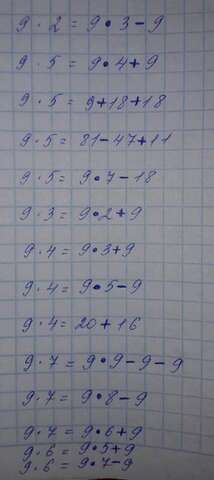 9 · 2 = 9 · 3 - 9
9 · 5 = 9 · 4 + 9
9 · 5 = 9 + 18 + 18
9 · 5 = 81 - 47 + 11
9 · 5 = 9 · 7 - 18
9 · 3 = 9 · 2 + 9
9 · 4 = 9 · 3 + 9
9 · 4 = 9 · 5 - 9
9 · 4 = 20 + 16
9 · 7 = 9 · 9 - 9 - 9
9 · 7 = 9 · 8 - 9
9 · 7 = 9 · 6 + 9
9 · 6 = 9 · 5 + 9
9 · 6 = 9 · 7 - 9